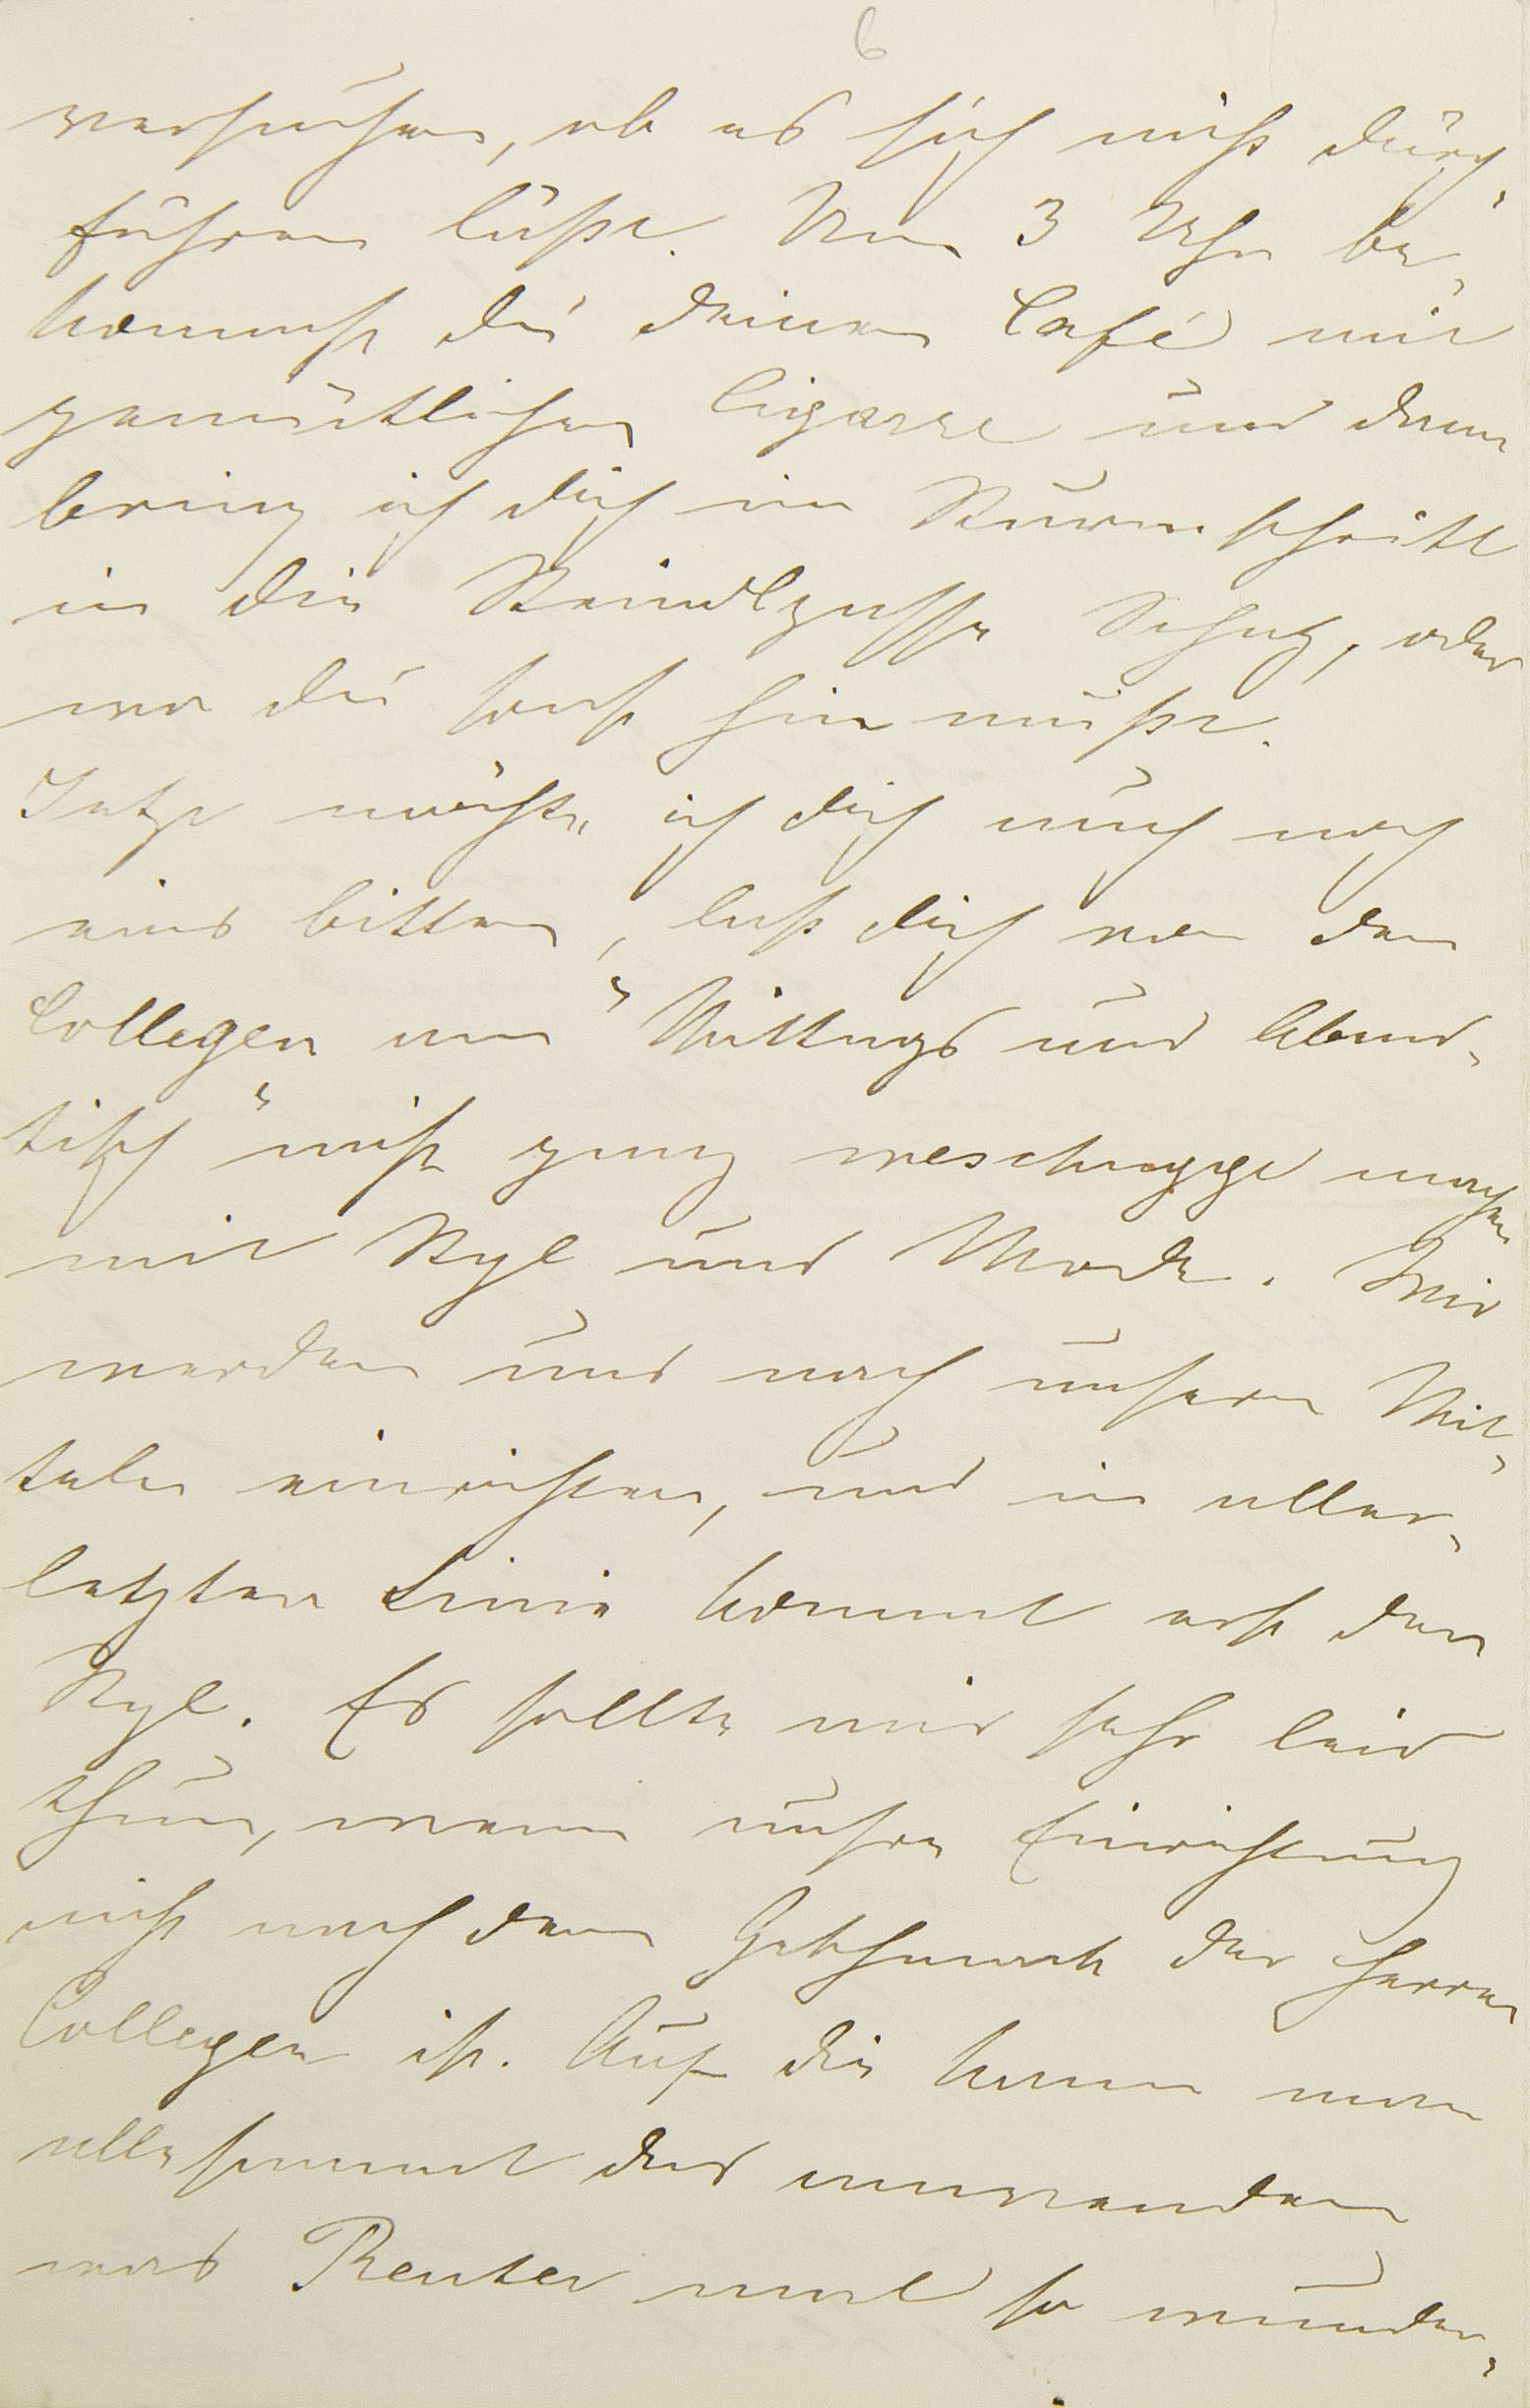 6
versuchen, ob es sich nicht durch-
führen läßt. Um 3 Uhr be-
kommst du deinen Café mit
gemütlicher Cigarre und dann
bring ich dich im Sturmschritt
in die Steindlgasse Schatz, oder
wo du sonst hin mußt.
Jetzt möchte ich dich auch noch
eins bitten, laß dich von den
Collegen am "Mittags und Abend-
tisch" nicht ganz meschugge machen
mit Styl und Mode. Wir
werden uns nach unsern Mit-
teln einrichten, und in aller-
letzter Linie kommt erst der
Styl. Es sollte mir sehr leid
thun, wenn unsre Einrichtung
nicht nach dem Geschmack der Herren
Collegen ist. Auf die kann man
allesammt das anwenden
was Reuter mal so wunder-